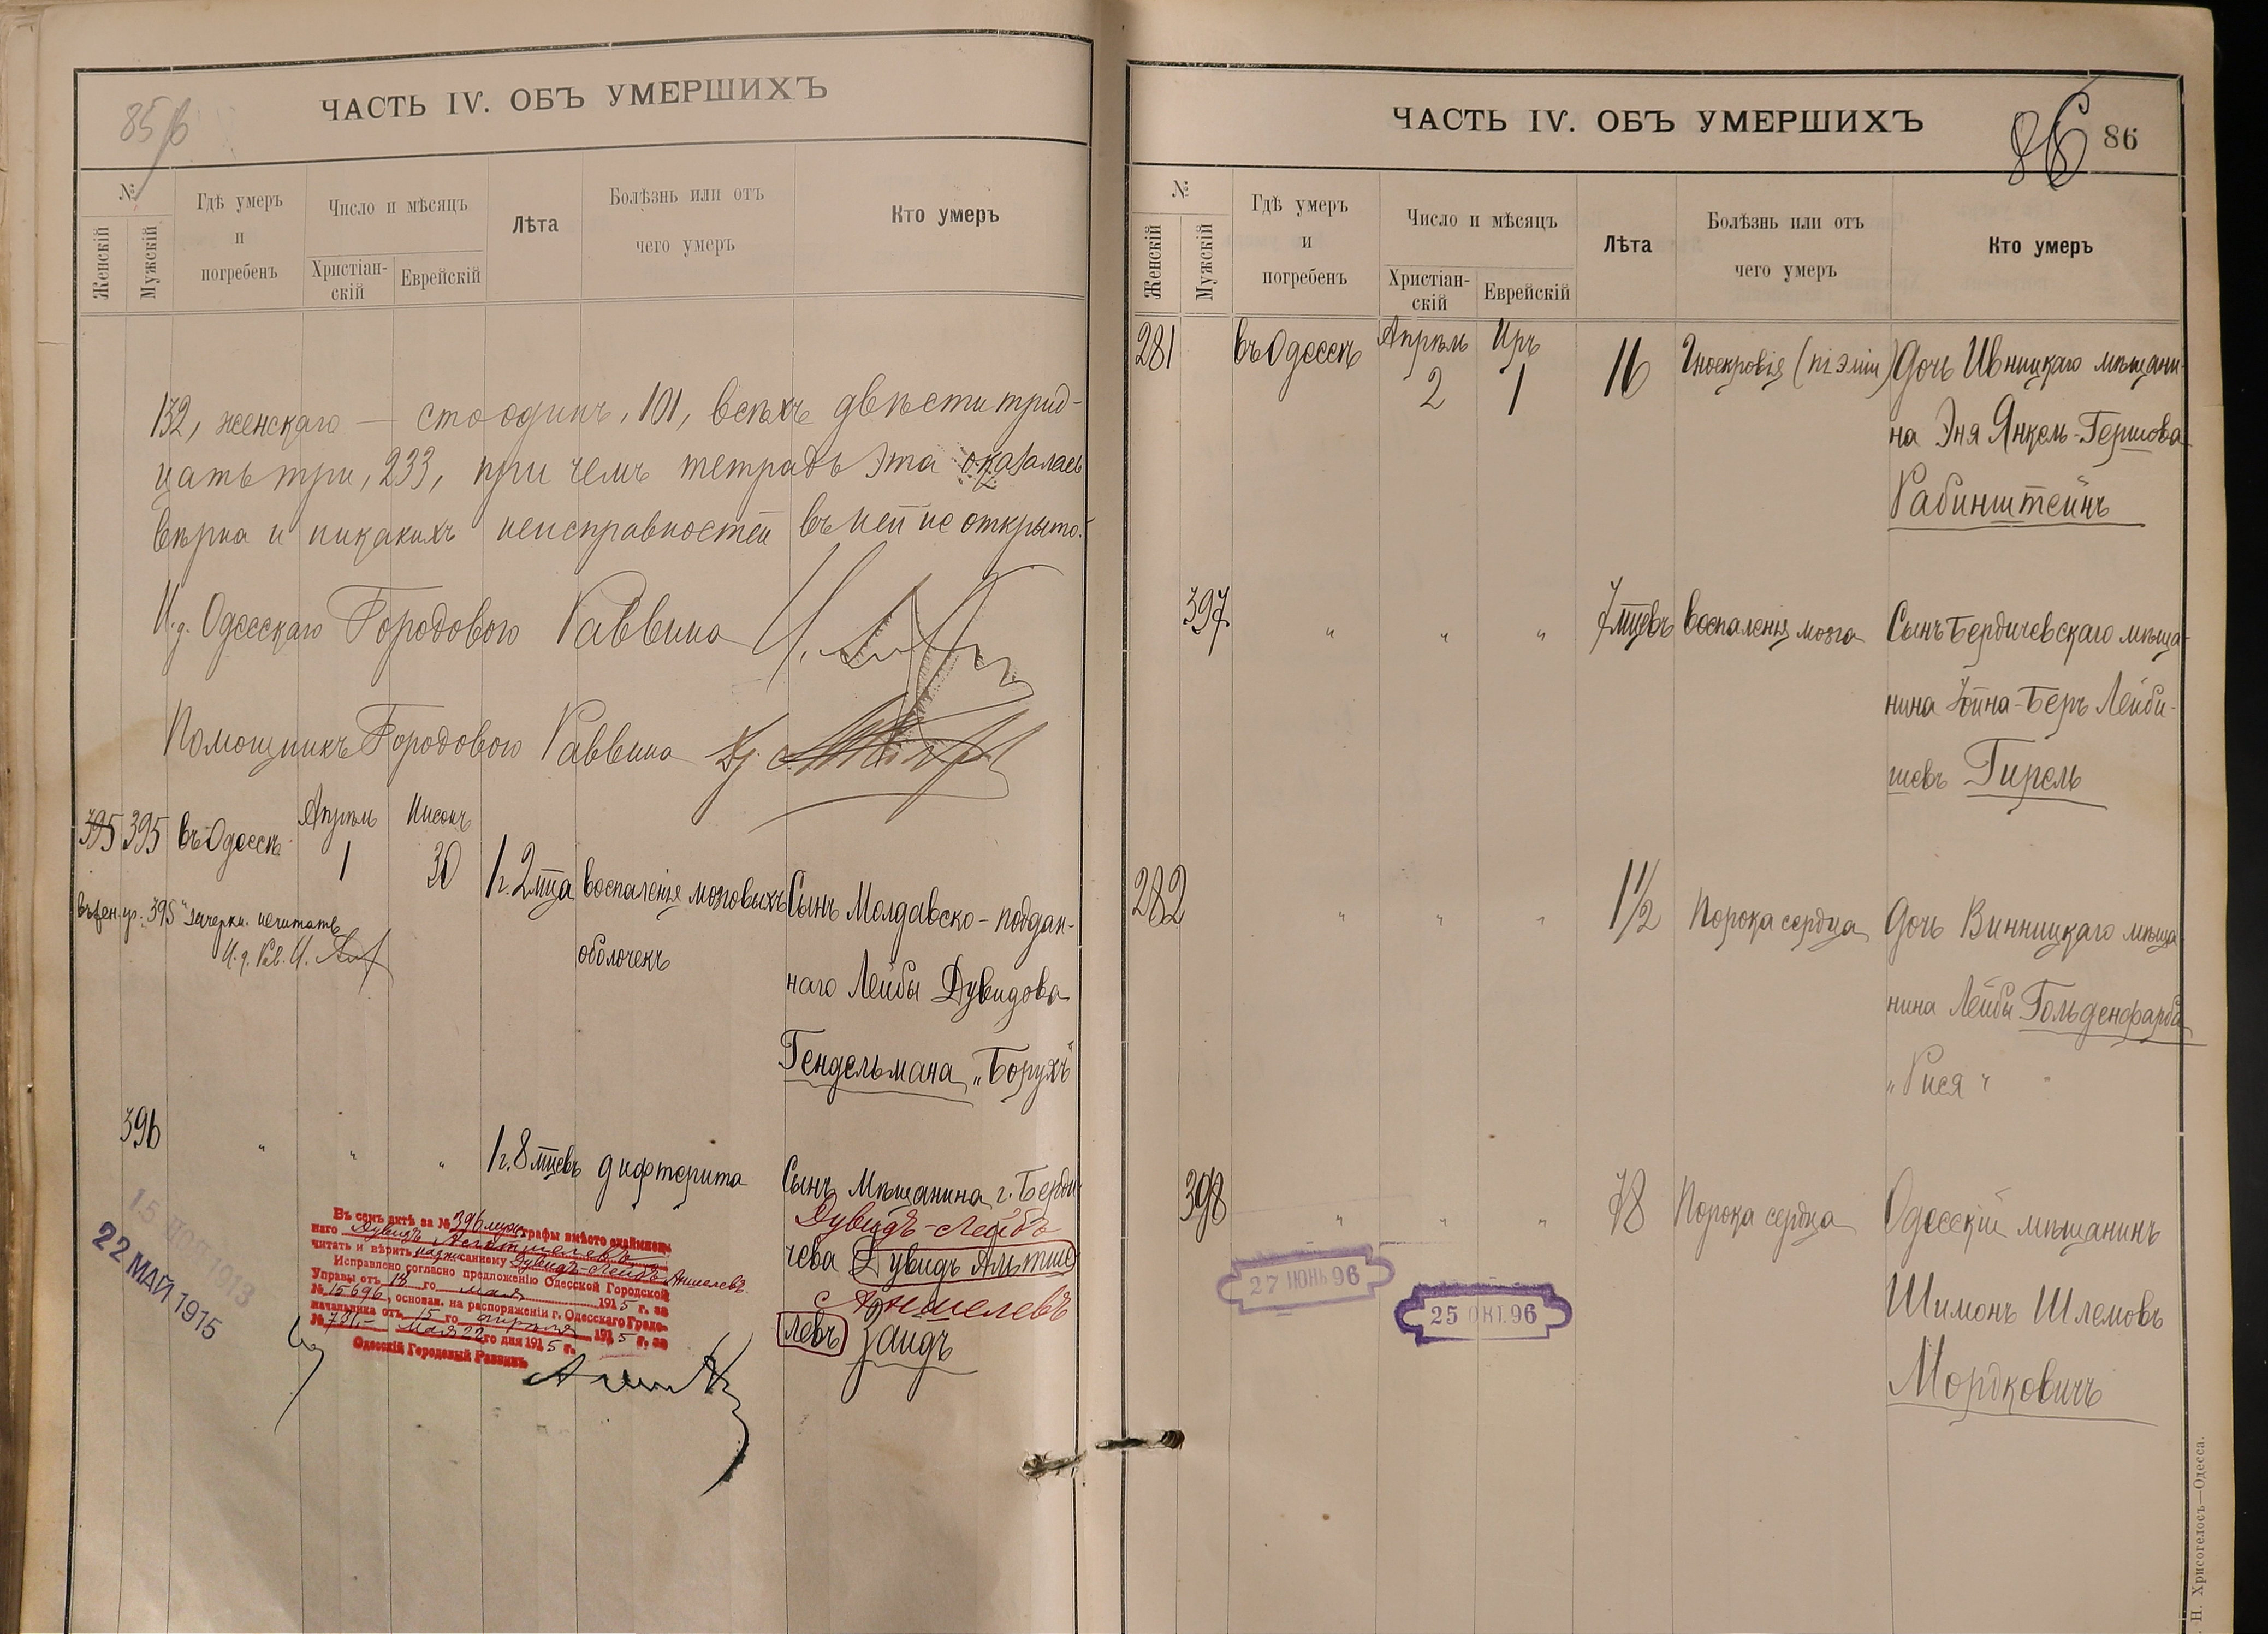 85 б
ЧАСТЬ IV. ОБЪ УМЕРШИХЪ
№
Женскій
Мужскій
Гдѣ умеръ
и
погребенъ
Число и мѣсяцъ
Христіан-
скій
Еврейскій
Лѣта
Болѣзнь или отъ
чего умеръ
Кто умеръ
132, женскаго — сто одинъ, 101, всѣхъ двѣсти трид-
цать три, 233, при чемъ тетрадь эта оказалась
вѣрна и никакихъ неисправностей въ ней не открыто.
И. д. Одесскаго Городового Раввина
Помощникъ Городового Раввина
395 395 въ Одессѣ Апрѣль 1 Нисонъ 30 1 г. 2 мца воспаленія мозговыхъ
оболочекъ
Сынъ Молдавско-поддан-
наго Лейбы Дувидова
Гендельмана „Борухъ"
въ жен. гр. „395" зачеркн. нечитать
И. д. Рав. И.
396 " " " 1 г. 8 мцевъ дифтерита
Сынъ мѣщанина г. Берди-
Дувидъ-Лейбъ
чева Дувидъ Альтше
Аншелевъ
левъ Заидъ
Въ семъ актѣ за № 396 муж. графы вмѣсто окаймлен-
наго Дувидъ
читать и вѣрить надписанному Дувидъ-Лейбъ Аншелевъ.
Исправлено согласно предложенію Одесской Городской
Управы отъ 13 го мая 1915 г. за
№ 15696, основан. на распоряженіи г. Одесскаго Градо-
начальника отъ 15 го апрѣля 1915 г. за
№ Мая 22 го дня 1915 г.
Одесскій Городовый Раввинъ
22 МАЙ 1915
ЧАСТЬ IV. ОБЪ УМЕРШИХЪ
86
86
№
Женскій
Мужскій
Гдѣ умеръ
и
погребенъ
Число и мѣсяцъ
Христіан-
скій
Еврейскій
Лѣта
Болѣзнь или отъ
чего умеръ
Кто умеръ
281 въ Одессѣ Апрѣль 2 Иръ 1 16 Гноекровія (піэміи)
Дочь Ивницкаго мѣщани-
на Эня Янкель-Гершова
Рабинштейнъ
397 " " " 7 мцевъ воспаленія мозга
Сынъ Бердичевскаго мѣща-
нина Іойна-Беръ Лейби-
шевъ Гирель
282 " " " 1½ Порока сердца
Дочь Винницкаго мѣща-
нина Лейбы Гольденфарба
„Рися"
398 " " " 78 Порока сердца
Одесскій мѣщанинъ
Шимонъ Шлемовъ
Мордковичъ
27 ІЮНЬ 96
25 ОКТ. 96
Н. Хрисогелосъ—Одесса.